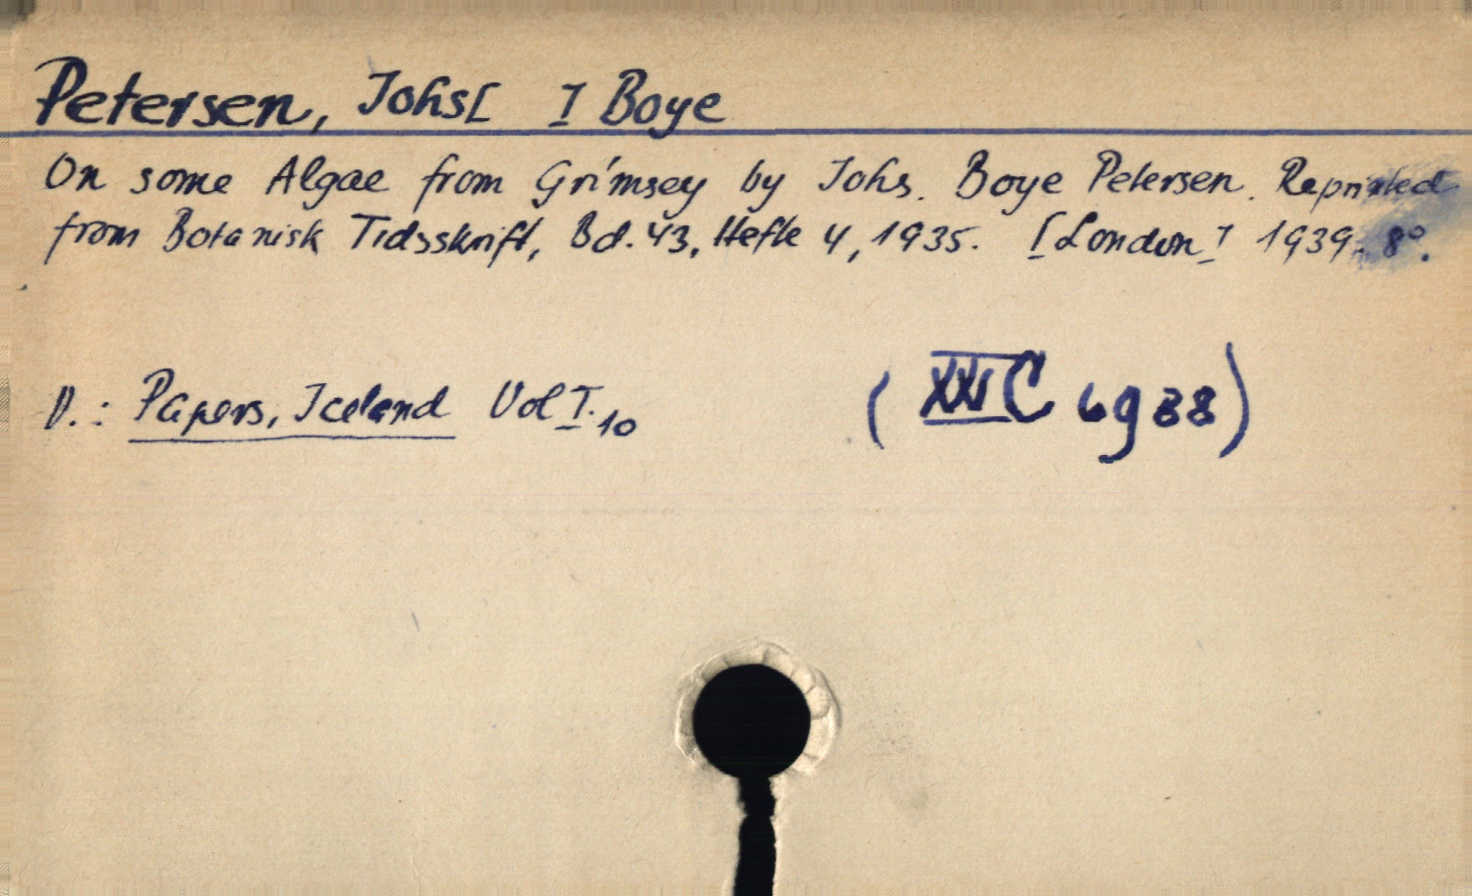 Petersen, Johs[ ] Boye
On some Algae from Grímsey by Johs. Boye Petersen. Reprinted
from Botanisk Tidsskrift, Bd. 43, Hefte 4, 1935. [London] 1939. 8°.
Papers, Iceland Vol I. 10
(XXI C 6988)